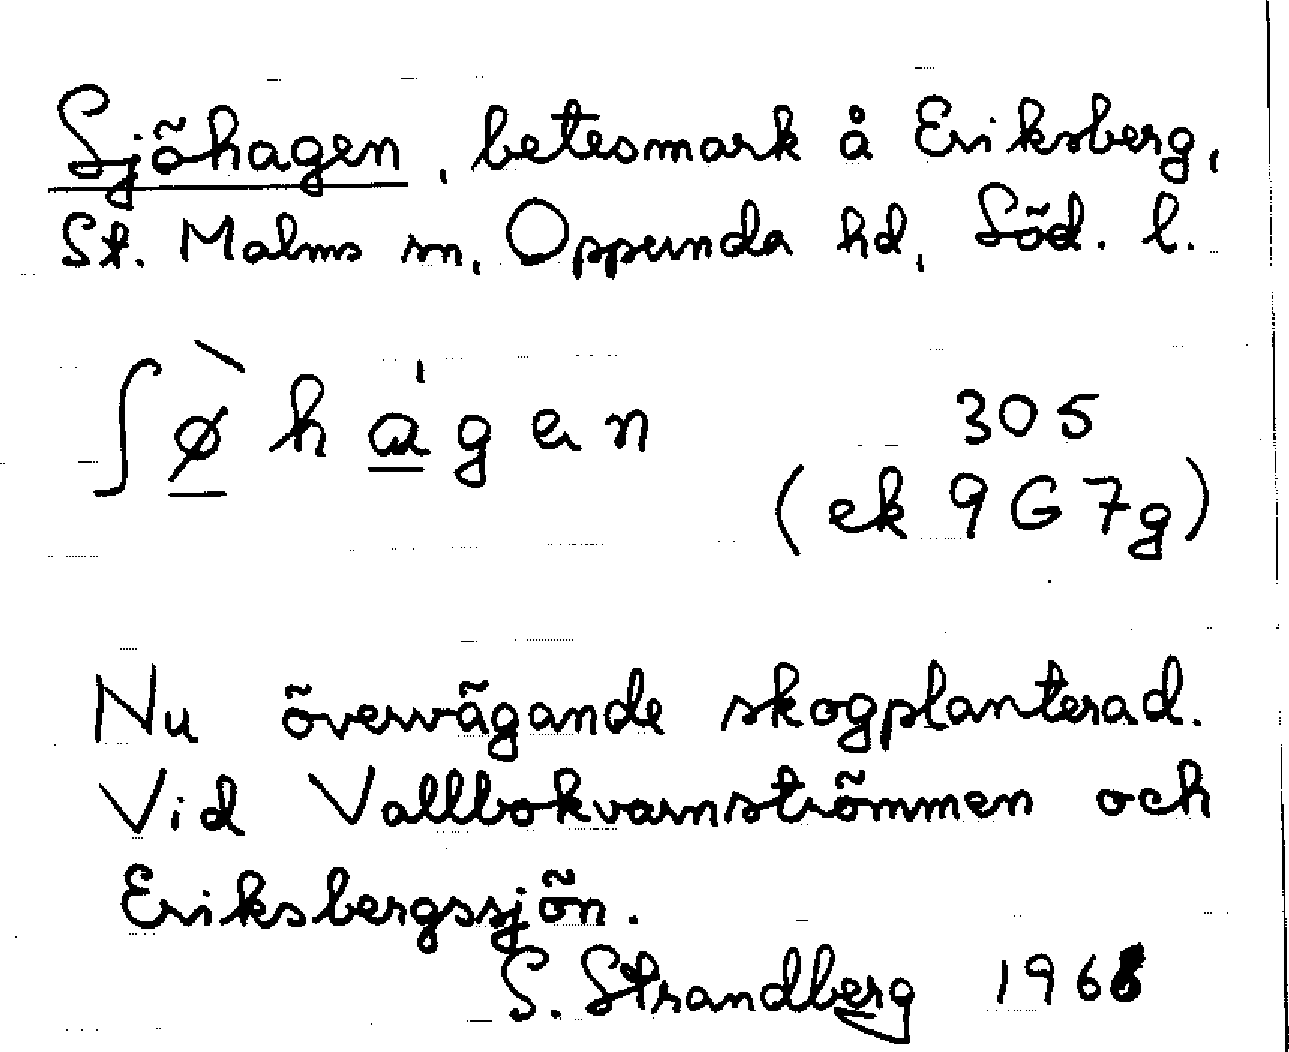 Sjöhagen, betesmark å Eriksberg,
St. Malms sn, Oppunda hd, Söd. l.
ʃø̀hágen
305
(ek 9G7g)
Nu övervägande skogplanterad.
Vid Vallbokvarnströmmen och
Eriksbergssjön.
S. Strandberg